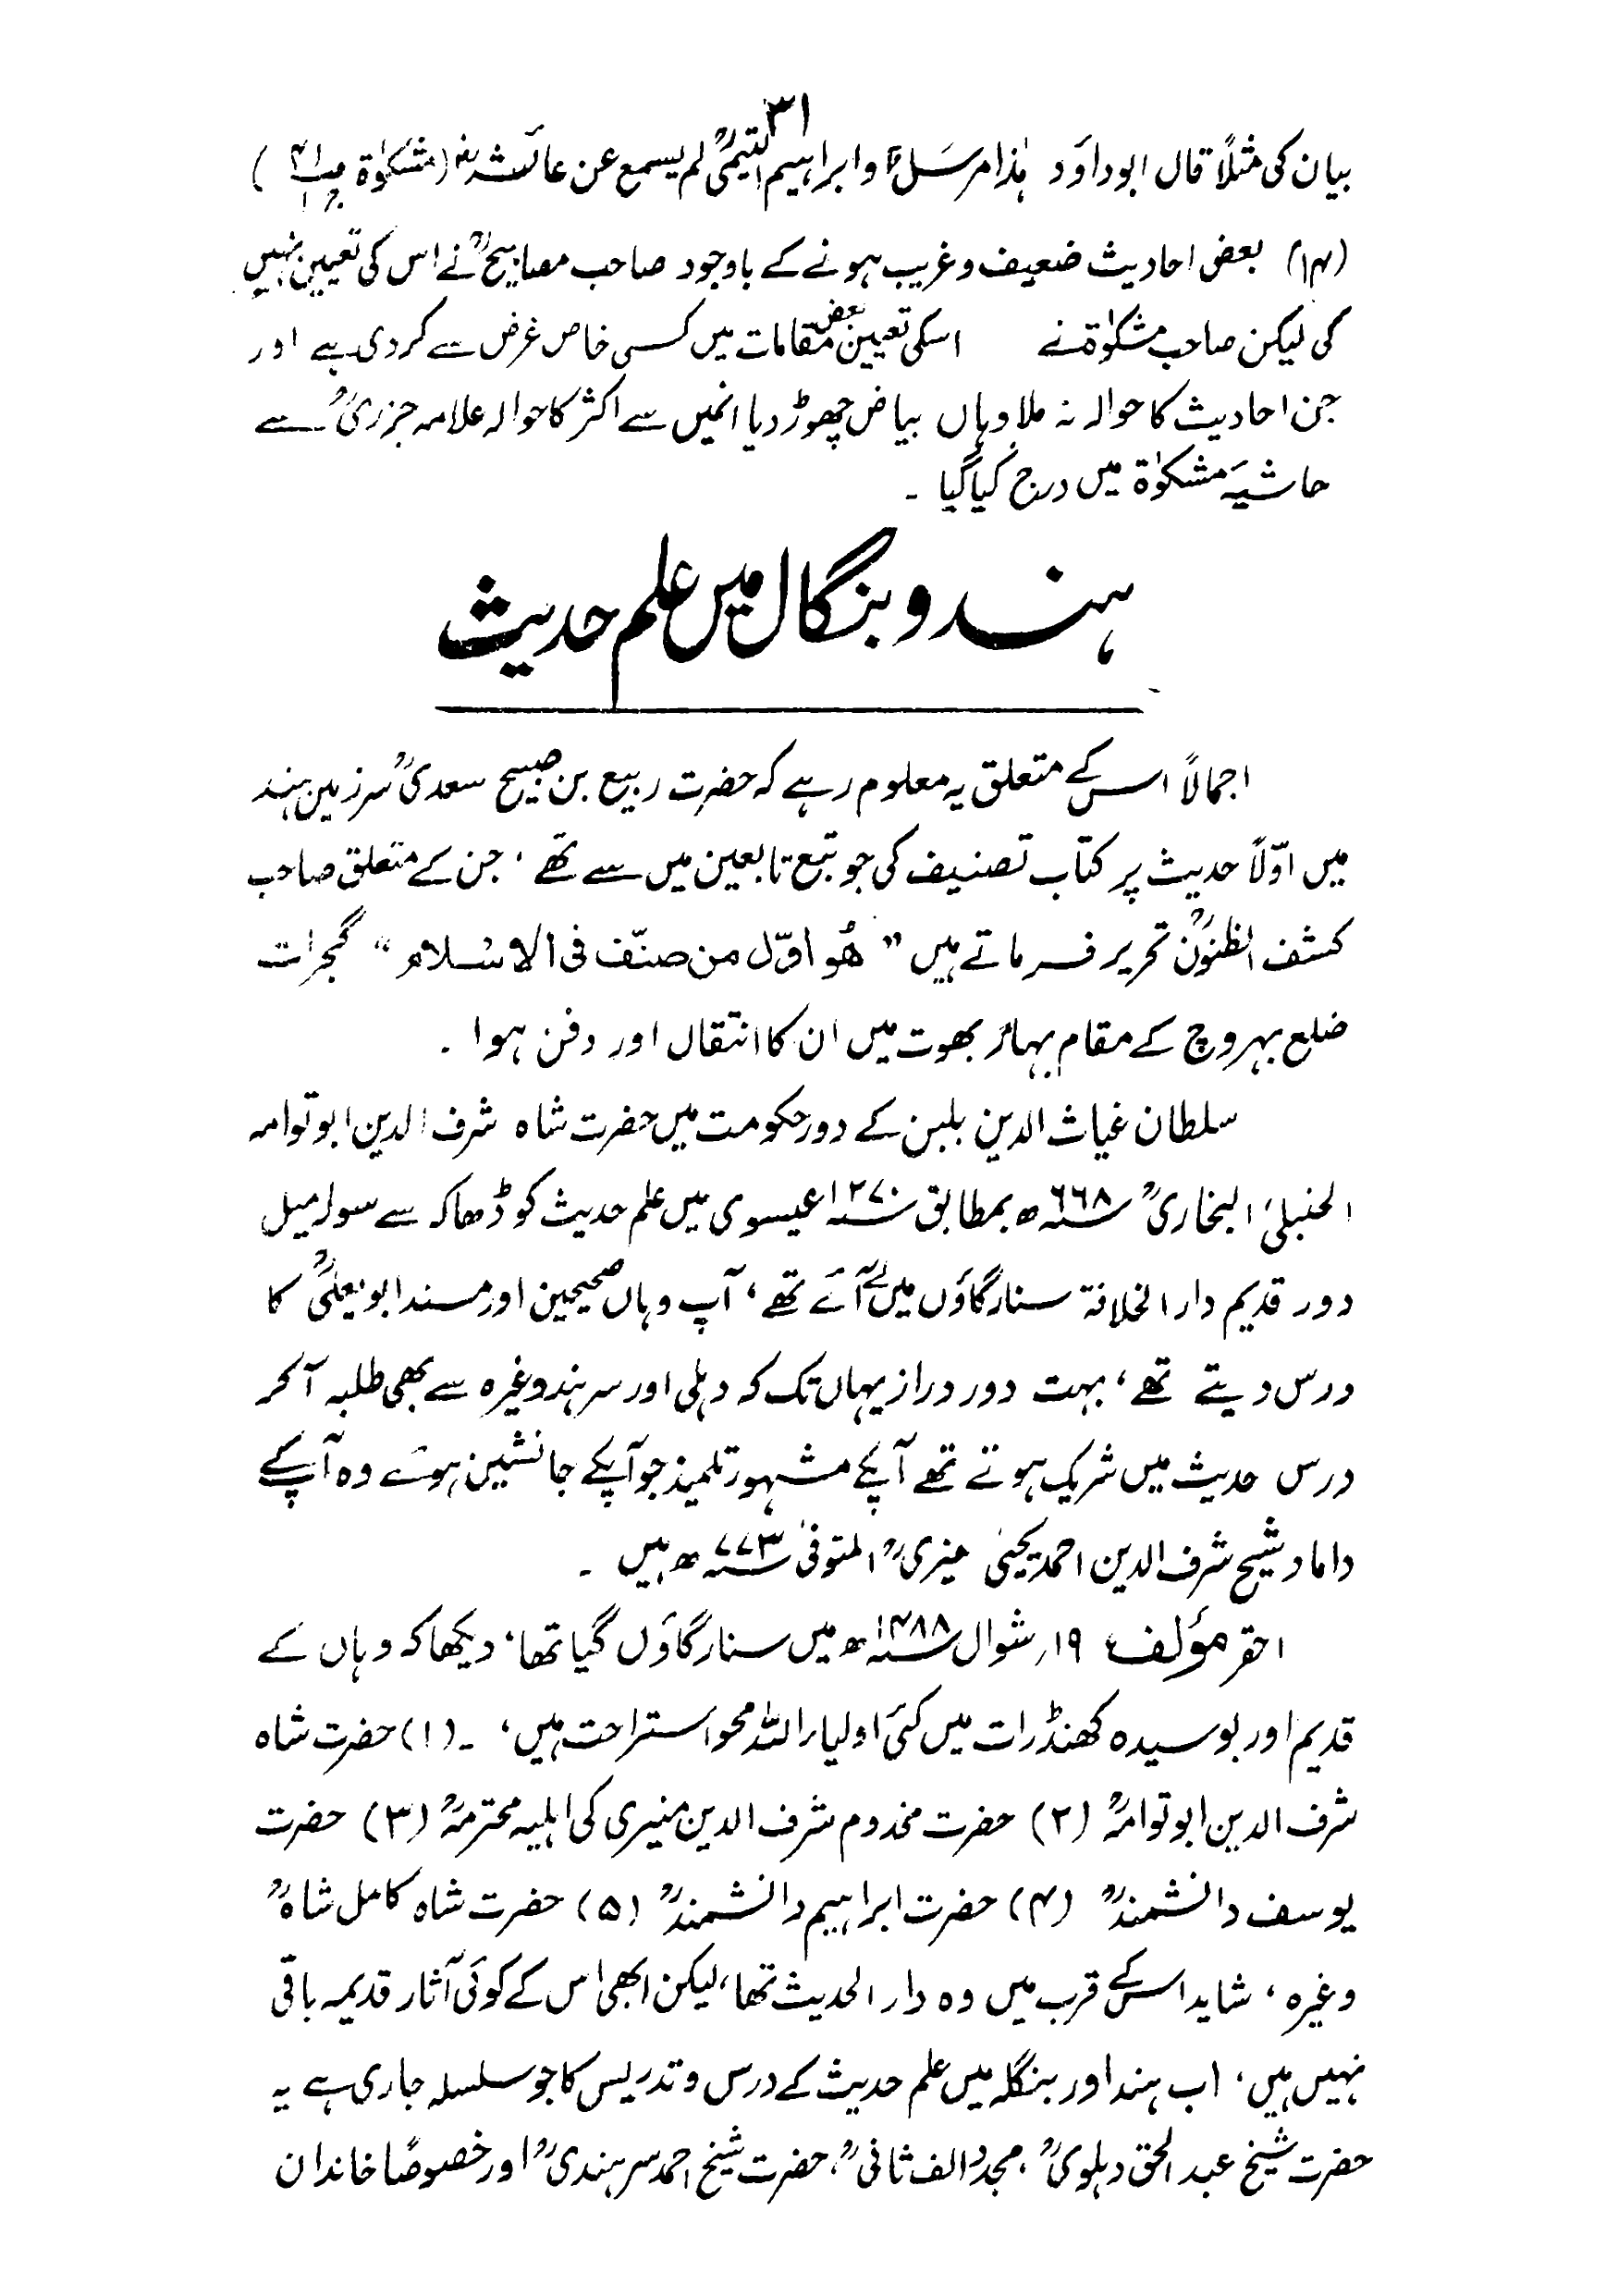 ۳۱
بیان کی مثلًا قال ابوداؤد ہٰذا مرسلٌ وابراہیم التیمیؒ لم یسمع عن عائشۃؓ (مشکوٰۃ)
(۱۴) بعض احادیث ضعیف وغریب ہونے کے باوجود صاحب مصابیحؒ نے اس کی تعیین نہیں
کی لیکن صاحب مشکوٰۃ نے اسکی تعیین بعض مقامات میں کسی خاص غرض سے کردی ہے اور
جن احادیث کا حوالہ نہ ملا وہاں بیاض چھوڑ دیا انمیں سے اکثر کا حوالہ علامہ جزریؒ سے
حاشیۂ مشکوٰۃ میں درج کیا گیا ۔
ہند و بنگال میں علم حدیث
اجمالاً اس کے متعلق یہ معلوم رہے کہ حضرت ربیع بن صبیح سعدیؒ سرزمین ہند
میں اوّلاً حدیث پر کتاب تصنیف کی جو تبع تابعین میں سے تھے ، جن کے متعلق صاحب
کشف الظنونؒ تحریر فرماتے ہیں ” ھُو اوّل من صنّف فی الاسلام “ گجرات
ضلع بہروچ کے مقام بہاڑ بھوت میں ان کا انتقال اور دفن ہوا ۔
سلطان غیاث الدین بلبن کے دور حکومت میں حضرت شاہ شرف الدین ابو توامہ
الحنبلیؒ البخاریؒ ۶۶۸؁ھ بمطابق ۱۲۷۰؁ عیسوی میں علم حدیث کو ڈھاکہ سے سولہ میل
دور قدیم دار الخلافۃ سنارگاؤں میں لے آئے تھے ، آپ وہاں صحیحین اور مسند ابو یعلیٰؒ کا
درس دیتے تھے ، بہت دور دراز یہاں تک کہ دہلی اور سرہند وغیرہ سے بھی طلبہ آکر
درس حدیث میں شریک ہوتے تھے آپکے مشہور تلمیذ جو آپکے جانشین ہوئے وہ آپکے
داماد شیخ شرف الدین احمد یحییٰ منیریؒ المتوفیٰ ۷۷۳؁ھ ہیں ۔
احقر مؤلف ۱۹؍ شوال ۱۴۸۸؁ھ میں سنارگاؤں گیا تھا ، دیکھا کہ وہاں کے
قدیم اور بوسیدہ کھنڈرات میں کئی اولیاء اللہ محو استراحت ہیں ، ۔ (۱) حضرت شاہ
شرف الدین ابو توامہؒ (۲) حضرت مخدوم شرف الدین منیری کی اہلیہ محترمہؒ (۳) حضرت
یوسف دانشمندؒ (۴) حضرت ابراہیم دانشمندؒ (۵) حضرت شاہ کامل شاہؒ
وغیرہ ، شاید اس کے قرب میں وہ دار الحدیث تھا ، لیکن ابھی اس کے کوئی آثار قدیمہ باقی
نہیں ہیں ، اب ہند اور بنگلہ میں علم حدیث کے درس و تدریس کا جو سلسلہ جاری ہے یہ
حضرت شیخ عبد الحق دہلویؒ ، مجدد الف ثانیؒ ، حضرت شیخ احمد سرہندیؒ اور خصوصًا خاندان